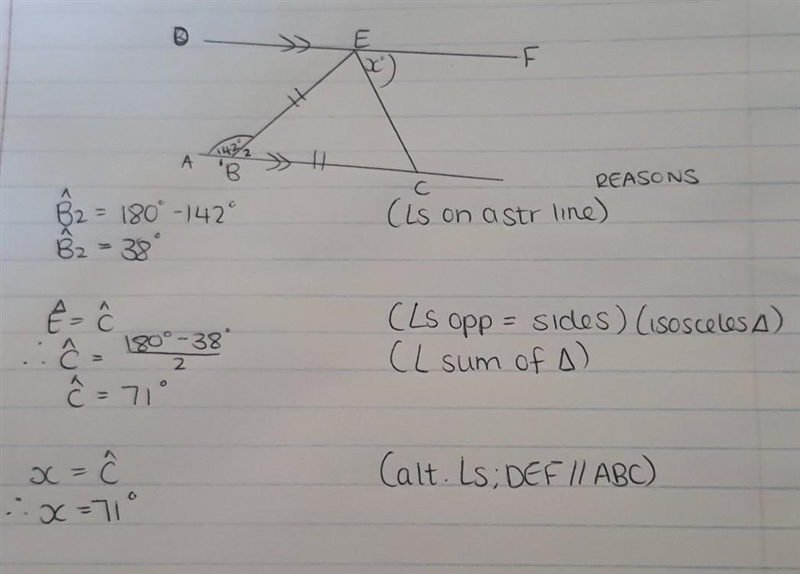 D E F
x°
142° 2
A 1 B C
REASONS
B̂2 = 180° - 142° (Ls on a str line)
B̂2 = 38°
Ê = Ĉ (Ls opp = sides) (isosceles Δ)
∴ Ĉ = 180° - 38° / 2 (L sum of Δ)
Ĉ = 71°
x = Ĉ (alt. Ls; DEF // ABC)
∴ x = 71°